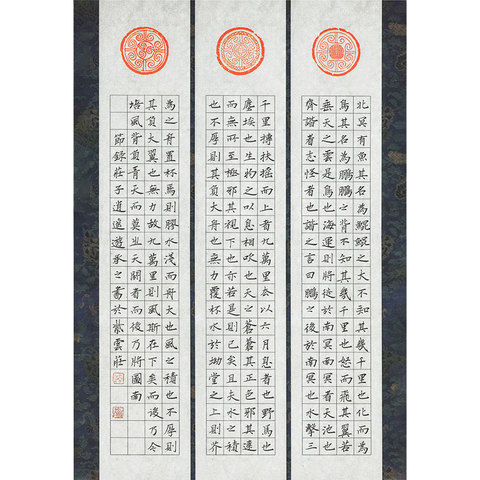 北冥有魚其名為鯤鯤之大不知其幾千里也化而為
鳥其名為鵬鵬之背不知其幾千里也怒而飛其翼若
垂天之雲是鳥也海運則將徙於南冥南冥者天池也
齊諧者志怪者也諧之言曰鵬之徙於南冥也水擊三
千里摶扶搖而上者九萬里去以六月息者也野馬也
塵埃也生物之以息相吹也天之蒼蒼其正色邪其遠
而無所至極邪其視下也亦若是則已矣且夫水之積
也不厚則其負大舟也無力覆杯水於坳堂之上則芥
為之舟置杯焉則膠水淺而舟大也風之積也不厚則
其負大翼也無力故九萬里則風斯在下矣而後乃今
培風背負青天而莫之夭閼者而後乃將圖南
節錄莊子逍遙遊承之書於紫雲莊